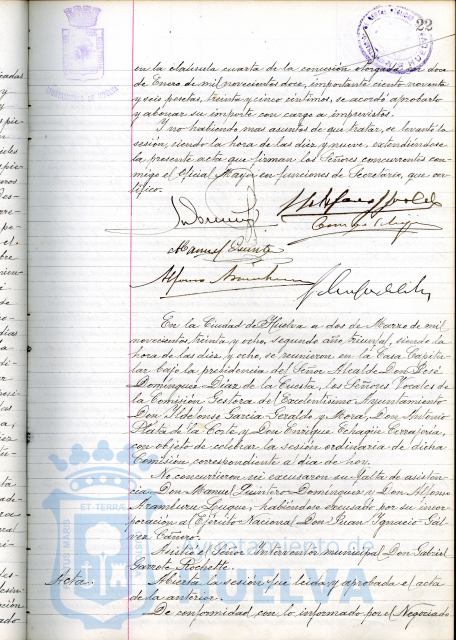 22
en la cláusula cuarta de la concesión otorgada en doce
de Enero de mil novecientos doce, importante ciento noventa
y seis pesetas, treinta y cinco céntimos, se acordó aprobarlo
y abonar su importe con cargo a imprevistos.
Y no habiendo mas asuntos de que tratar, se levantó la
sesión, siendo la hora de las diez y nueve, extendiéndose
la presente acta que firman los Señores concurrentes con-
migo el Oficial Mayor en funciones de Secretario, que cer-
tifico.
Manuel Quintero
En la Ciudad de Huelva a dos de Marzo de mil
novecientos treinta y ocho, segundo año triunfal, siendo la
hora de las diez y ocho, se reunieron en la Casa Capitu-
lar bajo la presidencia del Señor Alcalde Don José
Domínguez Díaz de la Cuesta, los Señores Vocales de
la Comisión Gestora del Excelentísimo Ayuntamiento
Don Ildefonso García Geraldo y Mora, Don Antonio
Plata de la Corte y Don Enrique Echagüe Cerrajería,
con objeto de celebrar la sesión ordinaria de dicha
Comisión correspondiente al día de hoy.
No concurrieron ni excusaron su falta de asisten-
cia Don Manuel Quintero Domínguez y Don Alfonso
Aramburu Luque, habiéndose excusado por su incor-
poración al Ejército Nacional Don Juan Ignacio Gál-
vez Cañero.
Asistió el Señor Interventor municipal Don Gabriel
Garrote Rochette.
Acta. Abierta la sesión fue leída y aprobada el acta
de la anterior.
De conformidad con lo informado por el Negociado
Ayuntamiento de
HUELVA